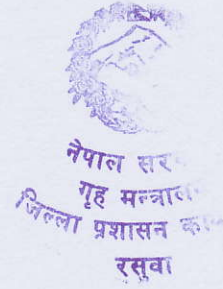 नेपाल सर
गृह मन्त्राल
जिल्ला प्रशासन का
रसुवा